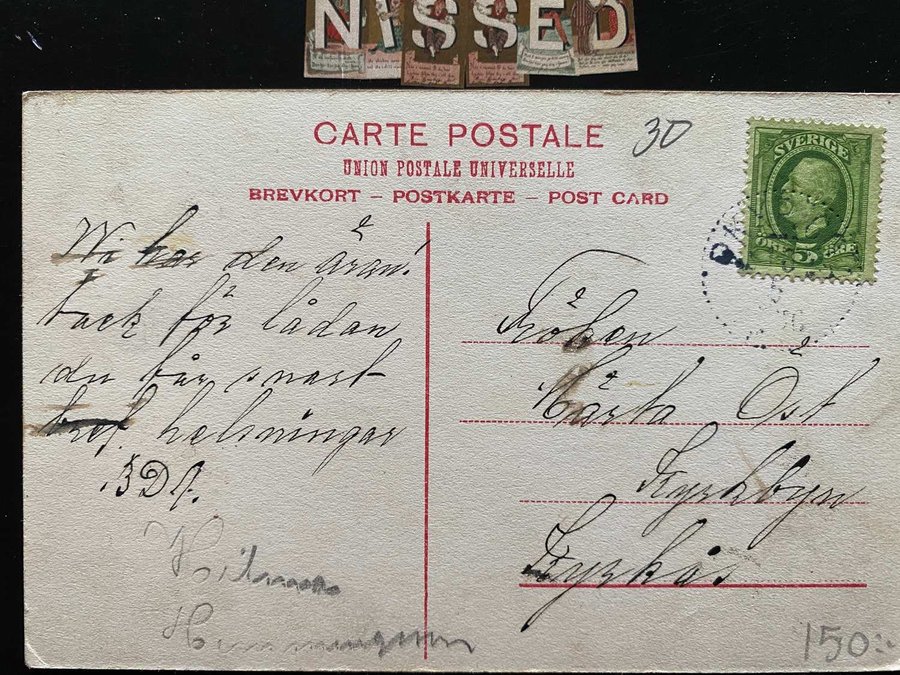 NISSED
CARTE POSTALE
30
UNION POSTALE UNIVERSELLE
BREVKORT – POSTKARTE – POST CARD
SVERIGE
ÖRE 5 ÖRE
Wi har den äran!
tack för lådan
du får snart
bref. helsningar
Fröken
Märta Öst
Kyrkbyn
Kyrkås
Hilma
150:-